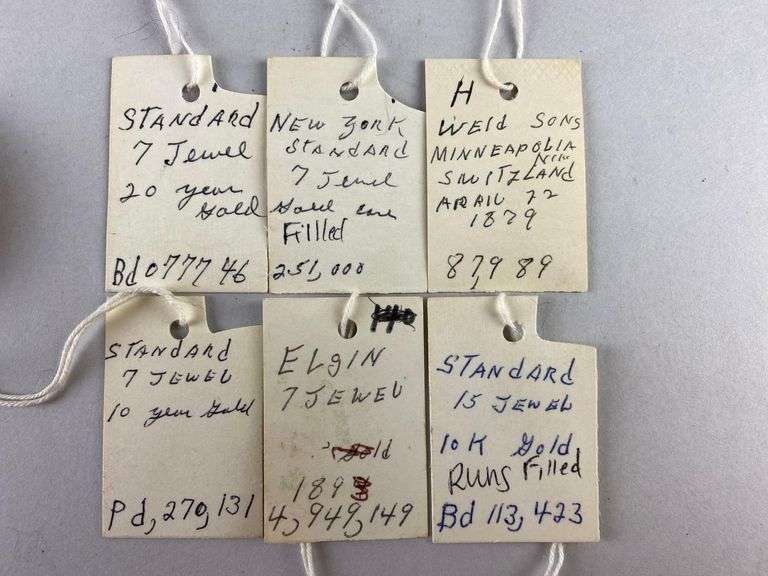 STANDARD
7 Jewel
20 year
Gold
Bd077746
NEW YORK
STANDARD
7 Jewel
Gold case
Fillled
251,000
H
Weld SONS
MINNEAPOLIA
MIN
SWITZLAND
APRIL 22
1879
87,989
STANDARD
7 JEWEL
10 year Gold
Pd,270,131
ELGIN
7 JEWEL
189
4,949,149
STANDARD
15 JEWEL
10K Gold
RUNS Filled
Bd 113,423